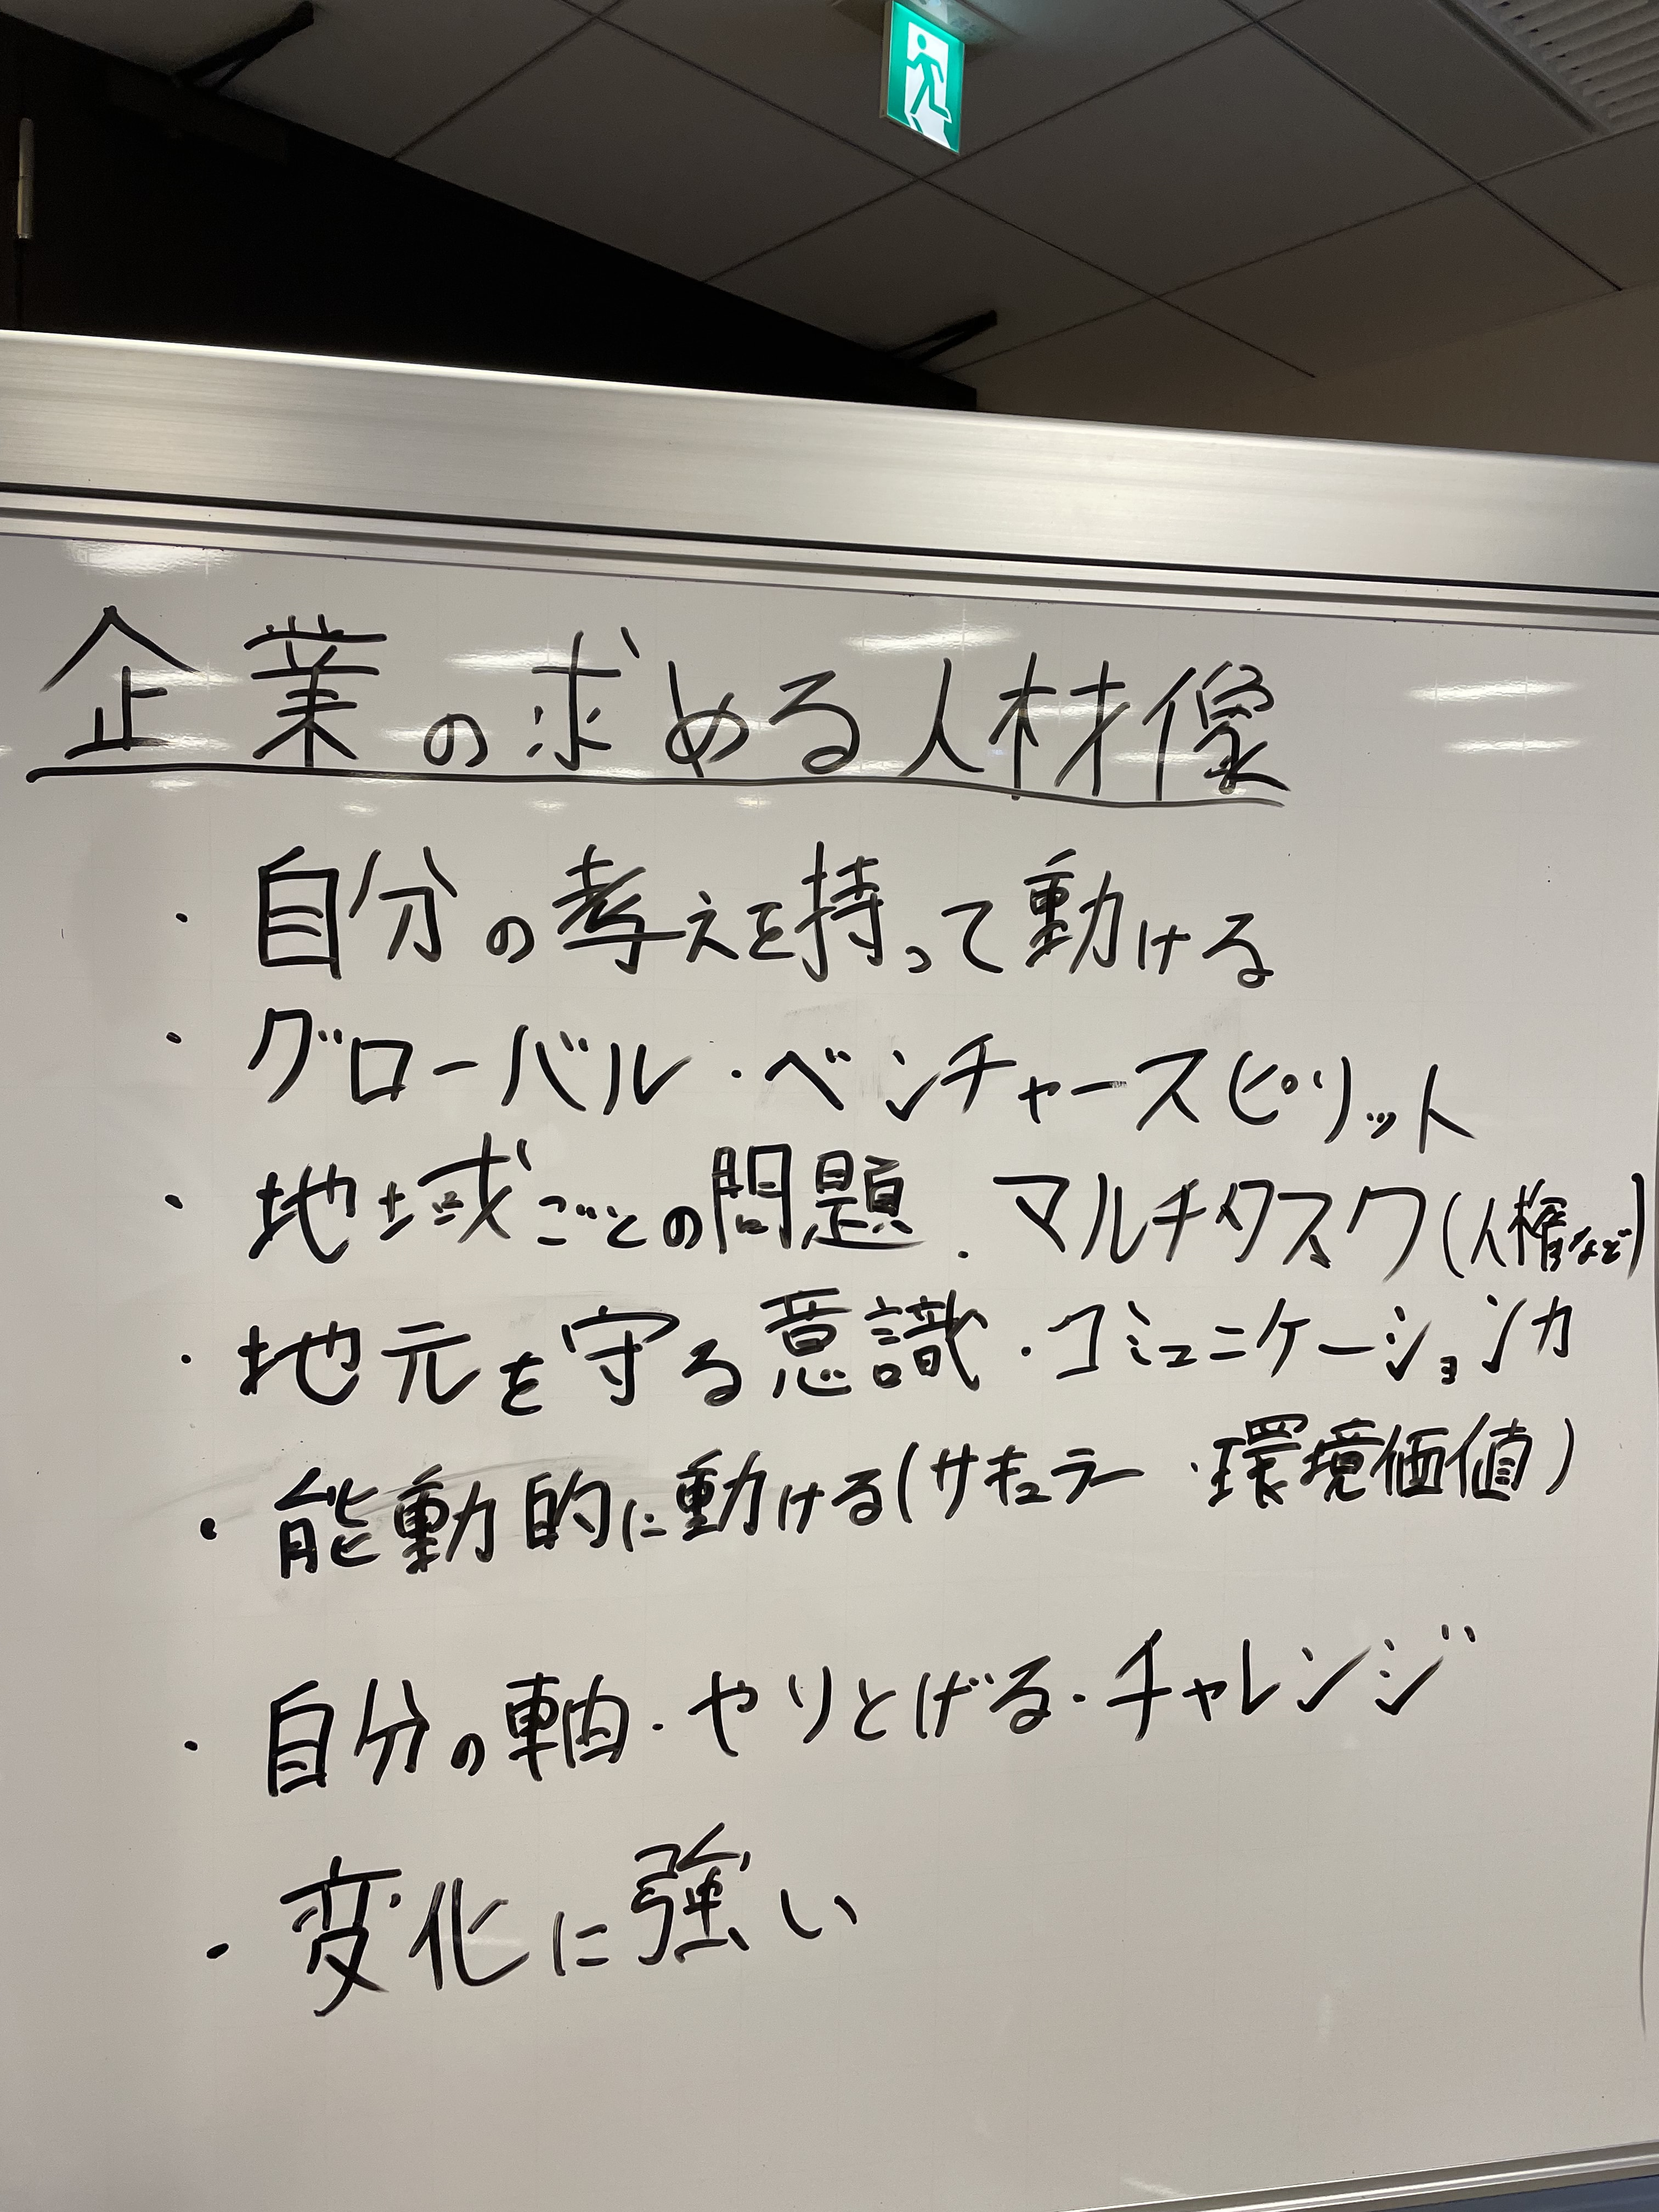 企業の求める人材像
・自分の考えを持って動ける
・グローバル・ベンチャースピリット
・地域ごとの問題．マルチタスク(人権など)
・地元を守る意識・コミュニケーション力
・能動的に動ける(サキュラー・環境価値)
・自分の軸・やりとげる・チャレンジ
・変化に強い